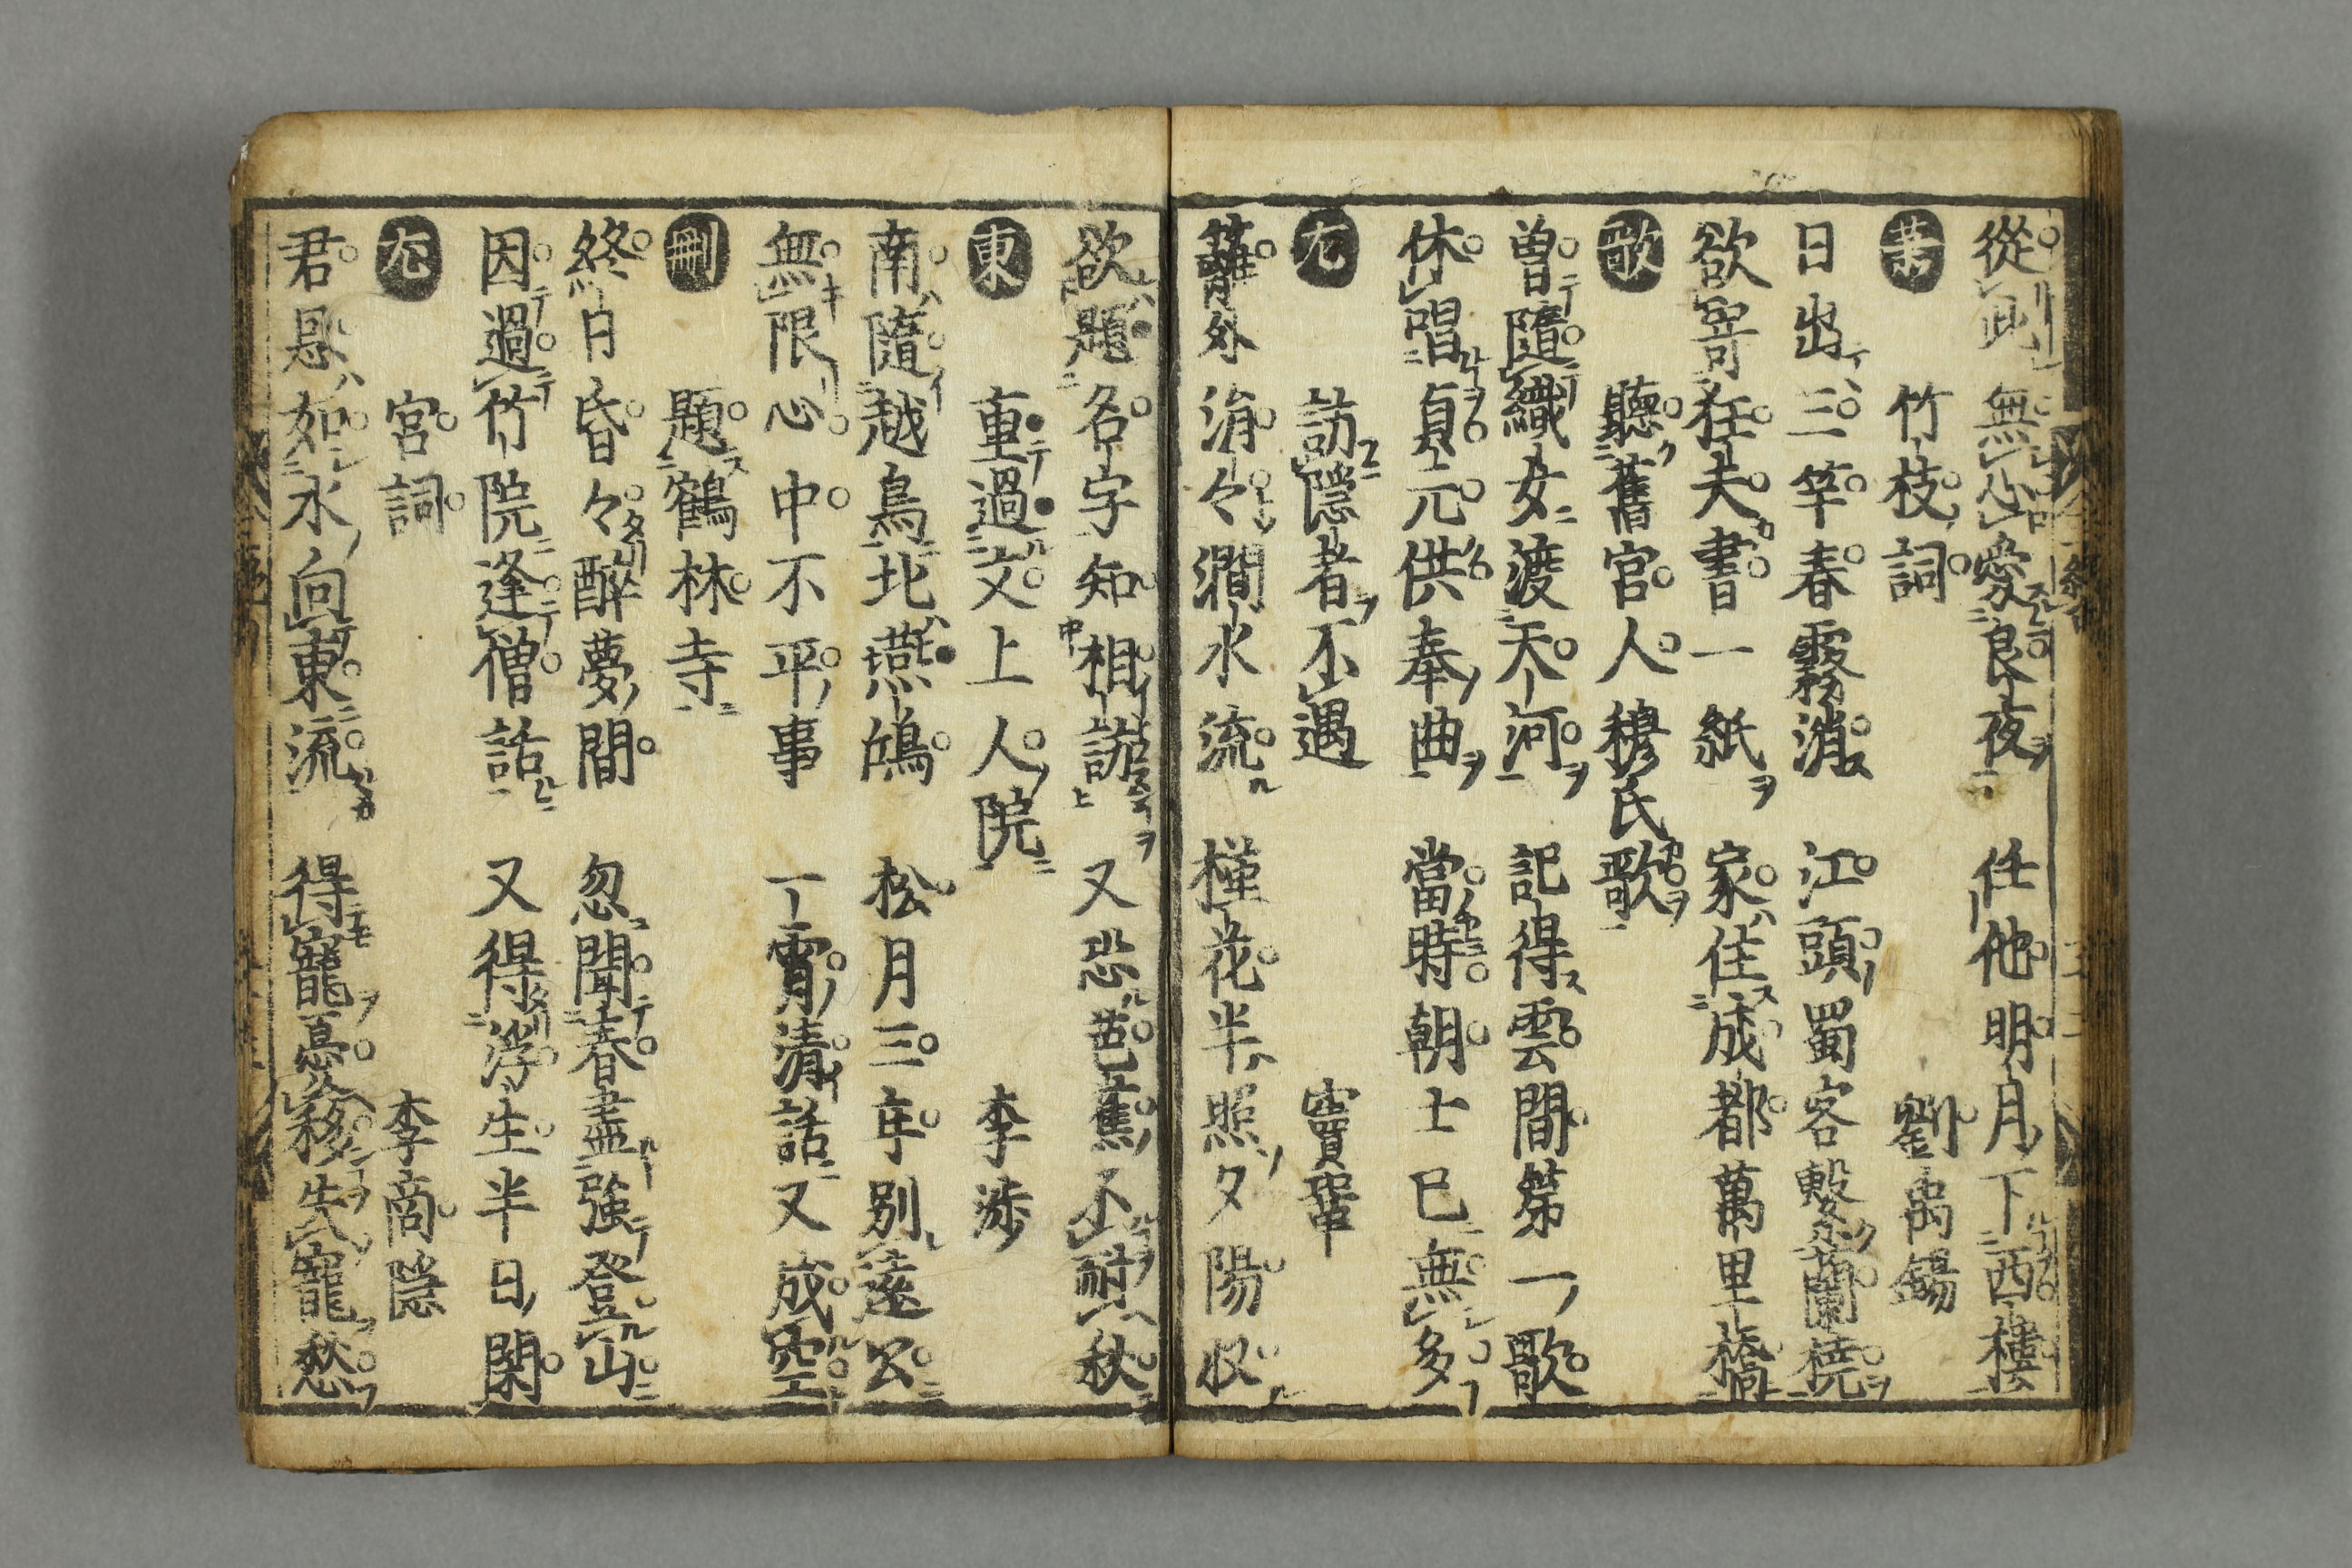 從此無心愛良夜 任他明月下西樓
竹枝詞 劉禹錫
日出三竿春霧消 江頭蜀客繫蘭橈
欲寄狂夫書一紙 家住成都萬里橋
歌 聽舊宮人穆氏歌
曽隨織女渡天河 記得雲間第一歌
休唱貞元供奉曲 當時朝士已無多
尤 訪隱者不遇 竇鞏
籬外涓々澗水流 槿花半照夕陽收
欲題名字知相訪 又恐芭蕉不耐秋
東 重過文上人院 李渉
南隨越鳥北燕鴻 松月三年別遠公
無限心中不平事 一宵清話又成空
刪 題鶴林寺
終日昏々醉夢間 忽聞春盡強登山
因過竹院逢僧話 又得浮生半日閑
尤 宮詞 李商隱
君恩如水向東流 得寵憂移失寵愁